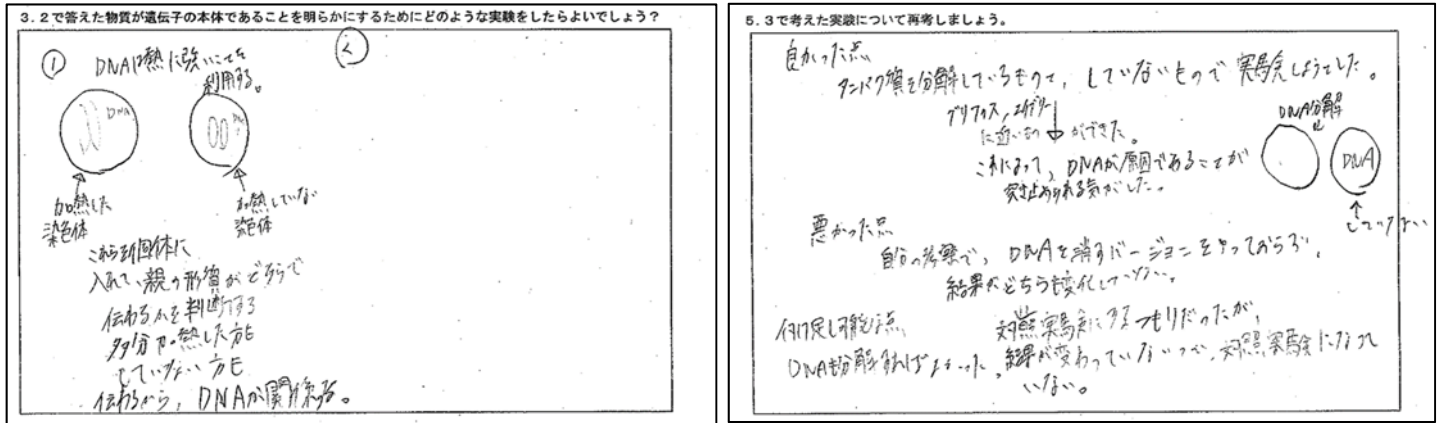 3．2で答えた物質が遺伝子の本体であることを明らかにするためにどのような実験をしたらよいでしょう？
①
DNAは熱に強いことを
利用する。
DNA
加熱した
染色体
加熱していない
染色体
これらを個体に
入れて、親の形質がどちらで
伝わるかを判断する
多分加熱した方も
していない方も
伝わるから、DNAが関係する。
②
5．3で考えた実験について再考しましょう。
良かった点
タンパク質を分解しているものと、していないもので実験しようとした。
グリフィス、エイブリー
に近いものができた。
これによって、DNAが原因であることが
突き止められる気がした。
DNA分解
DNA
していない
悪かった点
自分の考察で、DNAを消すバージョンをやっておらず、
結果がどちらも変化していない。
付け足し可能な点
DNAも分解すればよかった。
対照実験にするつもりだったが、
結果が変わっていないので、対照実験になって
いない。